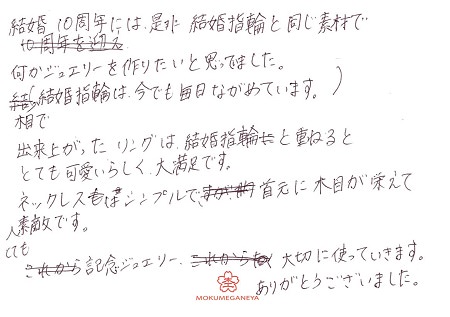 結婚10周年には、是非 結婚指輪と同じ素材で
10周年を迎え
何かジュエリーを作りたいと思ってました。
結(結婚指輪は、今でも毎日ながめています。)
木目で
出来上がった リングは、結婚指輪にと重ねると
とても可愛いらしく、大満足です。
ネックレスもはシンプルで、首元に木目が栄えて
素敵です。
とても
これから記念ジュエリー、これからも 大切に使っていきます。
ありがとうございました。
MOKUMEGANEYA